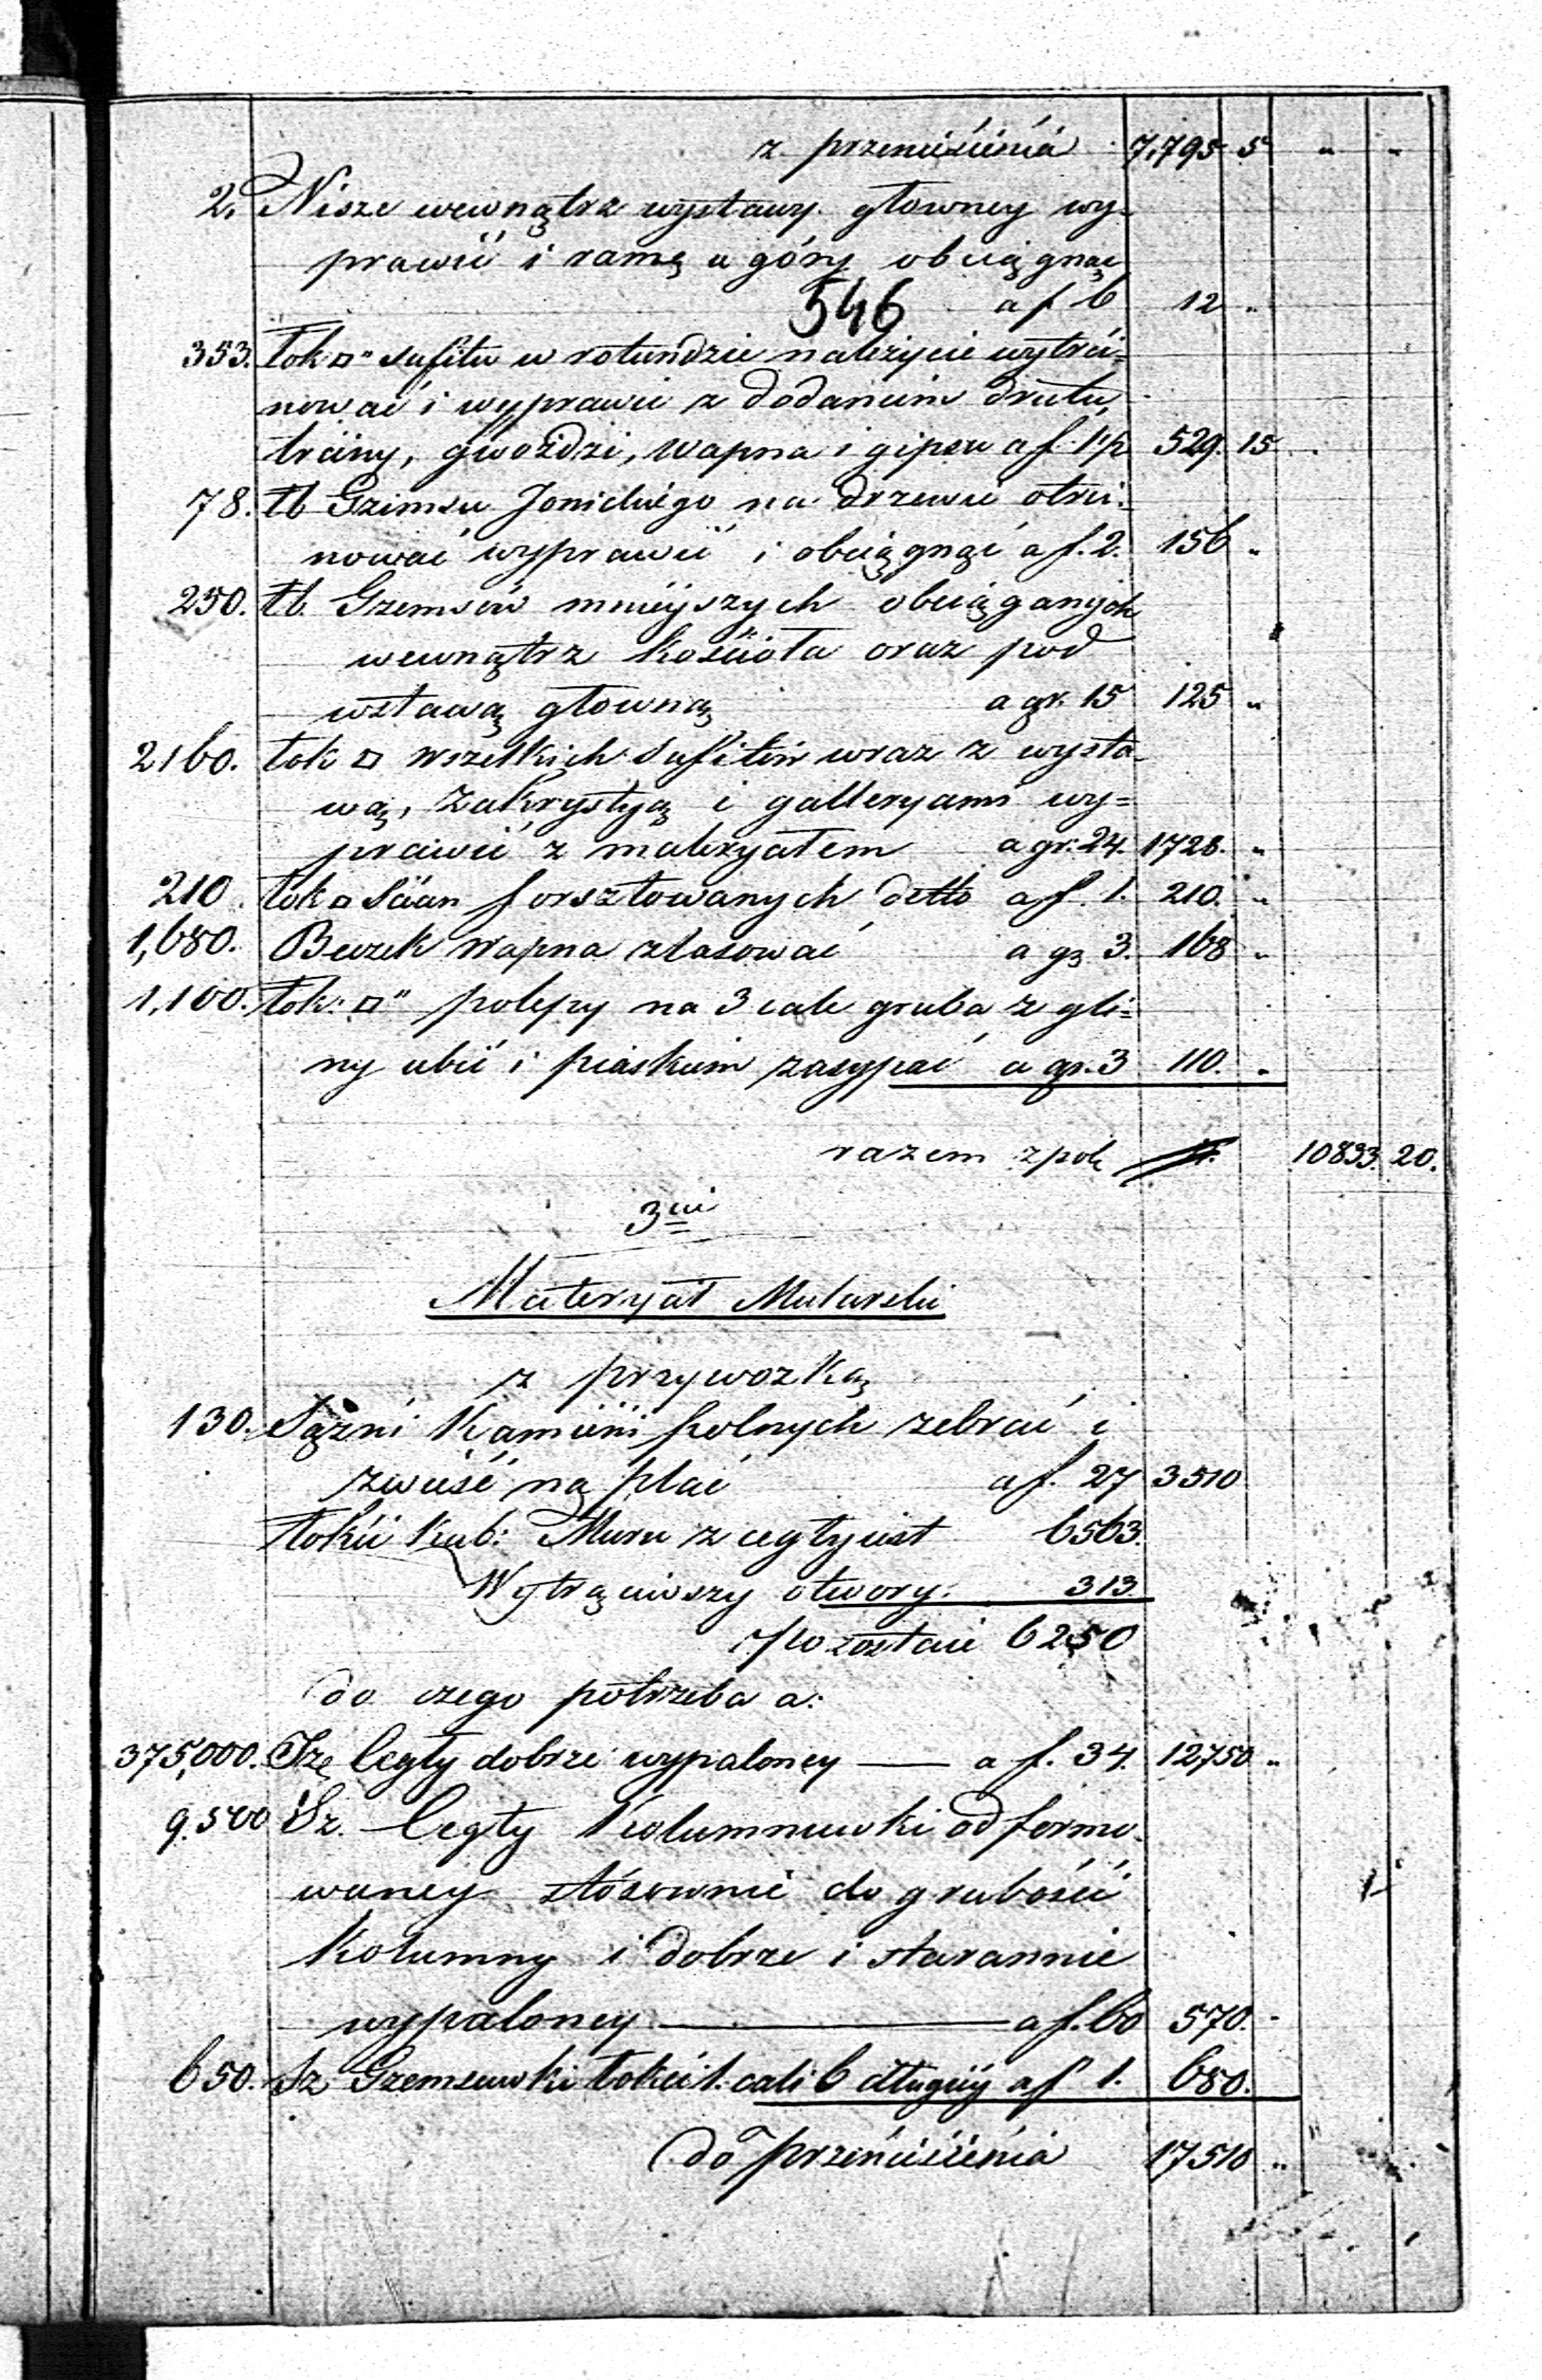 z przeniesienia 7,795 5 " "
2. Nisze wewnątrz wystawy głowney wy-
prawić i ramę u góry obciągnąć
546
a f 6 12 "
353. łok □" sufitu w rotundzie należycie wytrci=
nować i wyprawić z dodaniem drutu,
trciny, gwoździ, wapna i gipsu a f. 1½ 529. 15
78. łb Gzimsu Jonickiego na drzewie otrci-
nować wyprawić i obciągnąć a f. 2. 156 "
250. łb. Gzemsów mnieyszych obciąganych
wewnątrz kościoła oraz pod
wstawą głowną a gr. 15 125 "
2160. łok □ wszelkich sufitów wraz z wysta-
wą, Zakrystyą i galleryami wy=
prawić z materyałem a gr: 24. 1728. "
210. łok □ Ścian forsztowanych detto a f. 1. 210. "
1,680. Beczek wapna zlasować a gr 3. 168 "
1,100. łok: □" polepy na 3 cale gruba z gli=
ny ubić i piaskiem zasypać a gr. 3 110. "
razem zpol 10833. 20.
3cie
Materyał Mularski
z przywozką
130. Sążni Kamieni polnych zebrać i
zwieść na plac a f. 27 3510
Łokci Kub: Muru z cegły iest 6563.
Wytrąciwszy otwory. 313.
Pozostaie 6250
do czego potrzeba a:
375,000. Szt. Cegły dobrze wypaloney — a f. 34. 12750 "
9,500 Sz. Cegły Kolumnowki odformo-
waney stósownie do grubości
Kolumny i dobrze i starannie
wypaloney — a f. 60 570. "
650. Sz Gzemsowki łokci 1. cali 6 długiey a f 1. 680.
do przeniesienia 17510 "